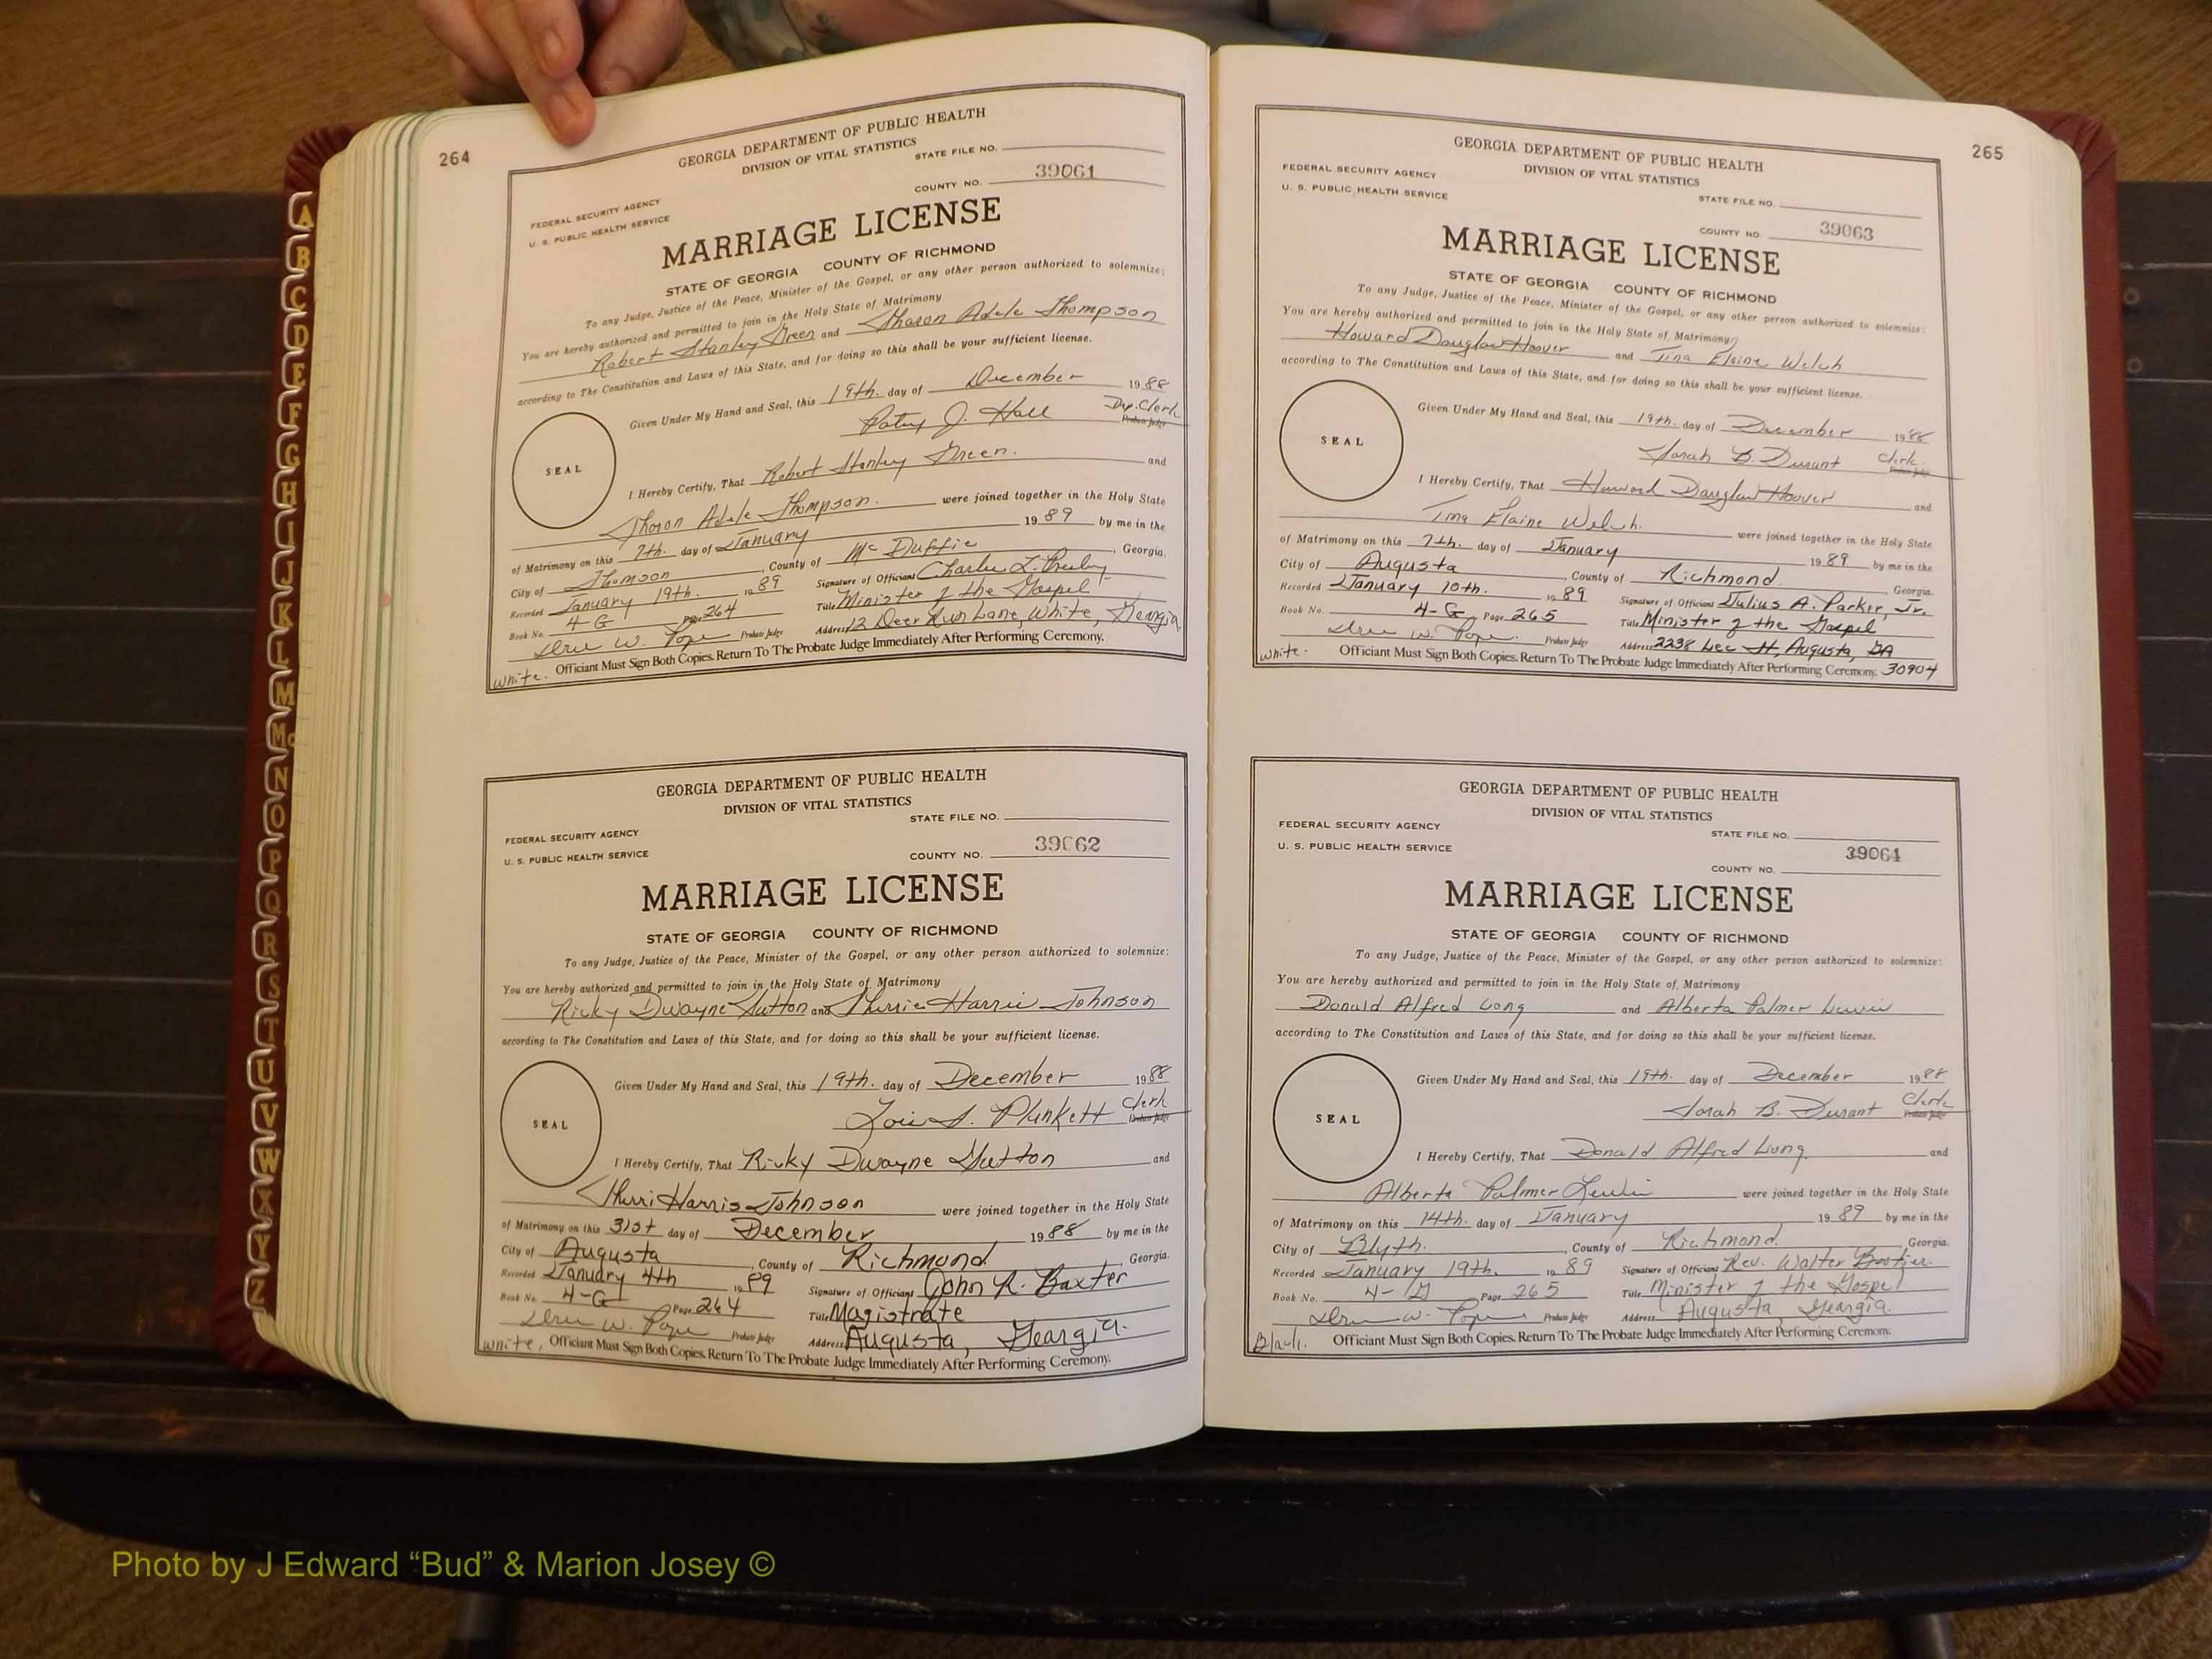 264
GEORGIA DEPARTMENT OF PUBLIC HEALTH
DIVISION OF VITAL STATISTICS
STATE FILE NO.
FEDERAL SECURITY AGENCY
U. S. PUBLIC HEALTH SERVICE
COUNTY NO. 39061
MARRIAGE LICENSE
STATE OF GEORGIA COUNTY OF RICHMOND
To any Judge, Justice of the Peace, Minister of the Gospel, or any other person authorized to solemnize:
You are hereby authorized and permitted to join in the Holy State of Matrimony
Robert Stanley Green and Sharon Adele Thompson
according to The Constitution and Laws of this State, and for doing so this shall be your sufficient license.
Given Under My Hand and Seal, this 19th. day of December 1988
Patsy J. Hall Dep. Clerk
Probate Judge
SEAL
I Hereby Certify, That Robert Stanley Green. and
Sharon Adele Thompson. were joined together in the Holy State
of Matrimony on this 7th. day of January 1989 by me in the
City of Thomson, County of McDuffie, Georgia.
Recorded January 19th. 1989 Signature of Officiant Charles L.
Book No. 4-G Page 264 Title Minister of the Gospel
W. Pope Probate Judge Address 12 Deer Run Lane, White, Georgia
White. Officiant Must Sign Both Copies. Return To The Probate Judge Immediately After Performing Ceremony.
GEORGIA DEPARTMENT OF PUBLIC HEALTH
DIVISION OF VITAL STATISTICS
STATE FILE NO.
FEDERAL SECURITY AGENCY
U. S. PUBLIC HEALTH SERVICE
COUNTY NO. 39062
MARRIAGE LICENSE
STATE OF GEORGIA COUNTY OF RICHMOND
To any Judge, Justice of the Peace, Minister of the Gospel, or any other person authorized to solemnize:
You are hereby authorized and permitted to join in the Holy State of Matrimony
Ricky Dwayne Sutton and Sherrie Harris Johnson
according to The Constitution and Laws of this State, and for doing so this shall be your sufficient license.
Given Under My Hand and Seal, this 19th. day of December 1988
Lois S. Plunkett Clerk
Probate Judge
SEAL
I Hereby Certify, That Ricky Dwayne Sutton and
Sherri Harris Johnson were joined together in the Holy State
of Matrimony on this 31st day of December 1988 by me in the
City of Augusta, County of Richmond, Georgia.
Recorded January 4th 1989 Signature of Officiant John R. Baxter
Book No. 4-G Page 264 Title Magistrate
W. Pope Probate Judge Address Augusta, Georgia.
White, Officiant Must Sign Both Copies. Return To The Probate Judge Immediately After Performing Ceremony.
265
GEORGIA DEPARTMENT OF PUBLIC HEALTH
DIVISION OF VITAL STATISTICS
FEDERAL SECURITY AGENCY
U. S. PUBLIC HEALTH SERVICE
STATE FILE NO.
COUNTY NO. 39063
MARRIAGE LICENSE
STATE OF GEORGIA COUNTY OF RICHMOND
To any Judge, Justice of the Peace, Minister of the Gospel, or any other person authorized to solemnize:
You are hereby authorized and permitted to join in the Holy State of Matrimony
Howard Douglas Hoover and Tina Elaine Welch
according to The Constitution and Laws of this State, and for doing so this shall be your sufficient license.
Given Under My Hand and Seal, this 19th. day of December 1988
Sarah B. Durant Clerk.
Probate Judge
SEAL
I Hereby Certify, That Howard Douglas Hoover and
Tina Elaine Welch. were joined together in the Holy State
of Matrimony on this 7th. day of January 1989 by me in the
City of Augusta, County of Richmond, Georgia.
Recorded January 10th. 1989 Signature of Officiant Julius A. Parker, Jr.
Book No. 4-G Page 265 Title Minister of the Gospel
W. Pope. Probate Judge Address 2238 Lee St, Augusta, GA
White. Officiant Must Sign Both Copies. Return To The Probate Judge Immediately After Performing Ceremony. 30904
GEORGIA DEPARTMENT OF PUBLIC HEALTH
DIVISION OF VITAL STATISTICS
FEDERAL SECURITY AGENCY
STATE FILE NO.
U. S. PUBLIC HEALTH SERVICE
COUNTY NO. 39064
MARRIAGE LICENSE
STATE OF GEORGIA COUNTY OF RICHMOND
To any Judge, Justice of the Peace, Minister of the Gospel, or any other person authorized to solemnize:
You are hereby authorized and permitted to join in the Holy State of Matrimony
Donald Alfred Long and Alberta Palmer Lewis
according to The Constitution and Laws of this State, and for doing so this shall be your sufficient license.
Given Under My Hand and Seal, this 19th. day of December 1988
Sarah B. Durant Clerk
Probate Judge
SEAL
I Hereby Certify, That Donald Alfred Long and
Alberta Palmer Lewis were joined together in the Holy State
of Matrimony on this 14th. day of January 1989 by me in the
City of Blyth., County of Richmond, Georgia.
Recorded January 19th. 1989 Signature of Officiant Rev. Walter
Book No. 4-G Page 265 Title Minister of the Gospel
W. Pope Probate Judge Address Augusta, Georgia.
Black. Officiant Must Sign Both Copies. Return To The Probate Judge Immediately After Performing Ceremony.
A
B
C
D
E
F
G
H
I
J
K
L
M
Mc
N
O
P
Q
R
S
T
U
V
W
X
Y
Z
Photo by J Edward “Bud” & Marion Josey ©